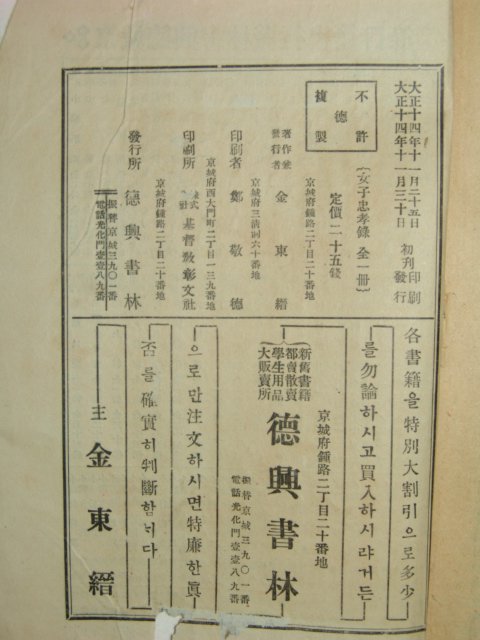 大正十四年十一月二十五日 初刊印刷
大正十四年十一月三十日 發行
不許
德
複製
【女子忠孝錄 全一冊】
定價二十五錢
京城府鍾路二丁目二十番地
著作兼
發行者 金東縉
京城府三淸洞六十番地
印刷者 鄭敬德
京城府西大門町二丁目一三九番地
印刷所 株式會社 基督敎彰文社
京城府鍾路二丁目二十番地
發行所 德興書林
振替京城三九〇一番
電話光化門壹壹八九番
各書籍을特別大割引으로多少
를勿論하시고買入하시랴거든
京城府鍾路二丁目二十番地
新舊書籍
都賣散賣
學生用品
大販賣所
德興書林
振替京城三九〇一番
電話光化門壹壹八九番
으로만注文하시면特廉한眞
否를確實히判斷함니다
主 金東縉